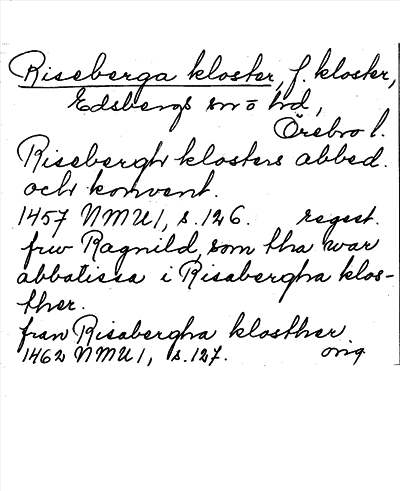 Riseberga kloster, f. kloster,
Edsbergs sn o hd,
Örebro l.
Risebergh klosters abbed.
och konvent.
1457 NMU 1, s. 126. regest.
frw Ragnild, som tha war
abbatissa i Risabergha klos-
ther.
fran Risabergha klosther
1462 NMU 1, s. 127. orig